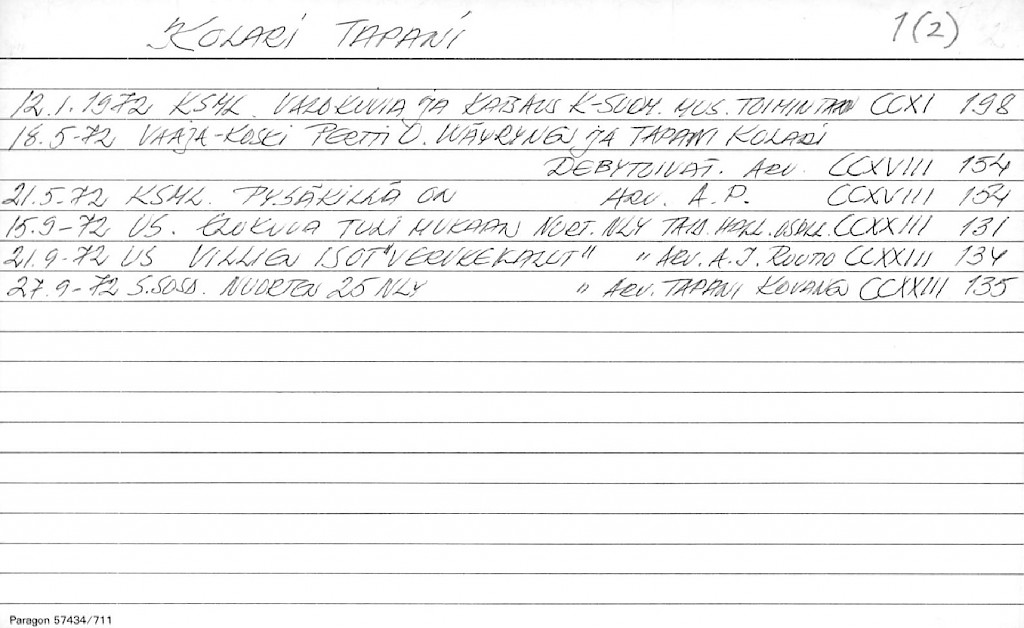 KOLARI TAPANI 1(2)
12.1.1972 KSML. VALOKUVIA ja KATSAUS K-SUOM. MUS. TOIMINTAAN CCXI 198
18.5-72 VAAJA-KOSKI PERTTI O. WÄYRYNEN ja TAPANI KOLARI
DEBYTOIVAT. ARV. CCXVIII 154
21.5-72 KSML. PYSÄKILLÄ ON ARV. A.P. CCXVIII 154
15.9-72 US. ELOKUVA TULI MUKAAN NUORT. NLY CCXXIII 131
21.9-72 US VILLIEN ISOT "VERKEKALUT" " ARV. A.I. ROUTIO CCXXIII 134
27.9-72 S.SOSD. NUORTEN 25 NLY " ARV. TAPANI KOVANEN CCXXIII 135
Paragon 57434/711